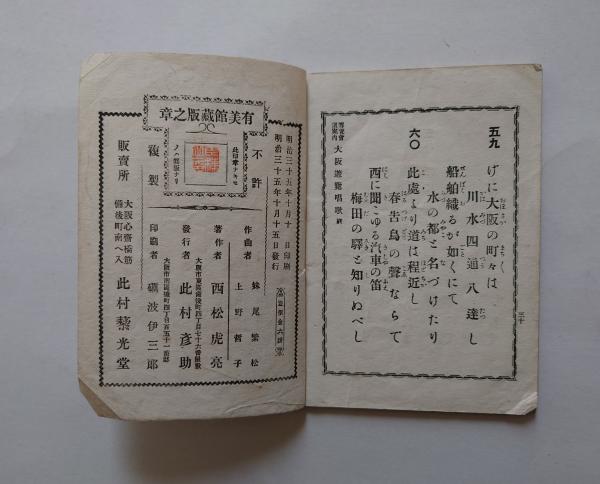 三十
五九
げに大阪の町々は
川水四通八達し
船舶織るが如くにて
水の都と名づけたり
六〇
此處より道は程近し
西に聞ゆる汽車の笛
春告鳥の聲ならで
梅田の驛と知りぬべし
大阪遊覽唱歌 終
有美館藏版之章
不許
複製
明治三十五年十月十日印刷
明治三十五年十月十五日發行
作曲者
妹尾繁松
上野哲子
著作者
西松虎亮
大阪市東區南後町四丁目七十六番屋敷
發行者
此村彦助
印刷者
礒波伊三郎
販賣所
大阪心齋橋筋
備後町南へ入
此村藜光堂